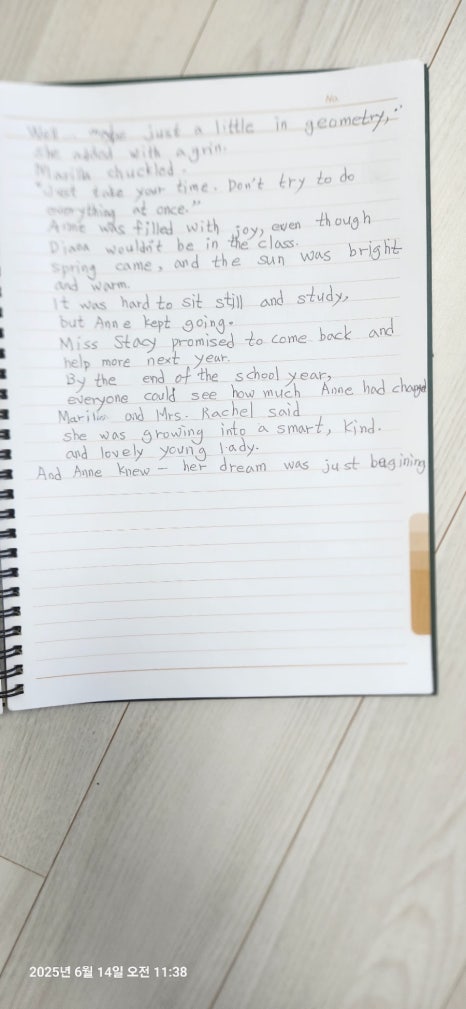 No.
Well - maybe just a little in geometry,"
she added with a grin.
Marilla chuckled.
"Just take your time. Don't try to do
everything at once."
Anne was filled with joy, even though
Diana wouldn't be in the class.
spring came, and the sun was bright
and warm.
It was hard to sit still and study,
but Anne kept going.
Miss Stacy promised to come back and
help more next year.
By the end of the school year,
everyone could see how much Anne had changed
Marilla and Mrs. Rachel said
she was growing into a smart, kind.
and lovely young lady.
And Anne knew - her dream was just begining
2025년 6월 14일 오전 11:38